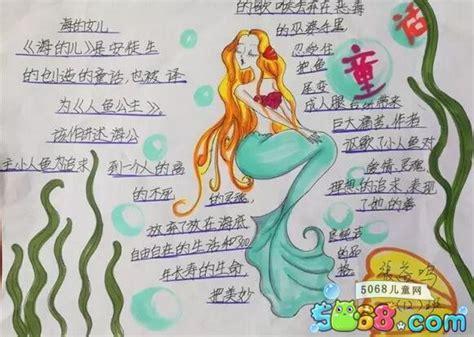 海的女儿
《海的女儿》是安徒生
的创造的童话,也被译
为《人鱼公主》
该作讲述海公
主小人鱼为追求
到一个人的
的不死
的灵魂,
放弃了放在海底
自由自在的生活和300
年长寿的生命
把美妙
的歌喉丢弃在恶毒
的巫婆手里
忍受住
把鱼
尾变
成人腿
巨大痛苦,作者
小人鱼对
爱情、灵魂、
理想的追求,表现
了她的善
良纯洁
的品
格
童话
(12)班
5068儿童网
5068.com